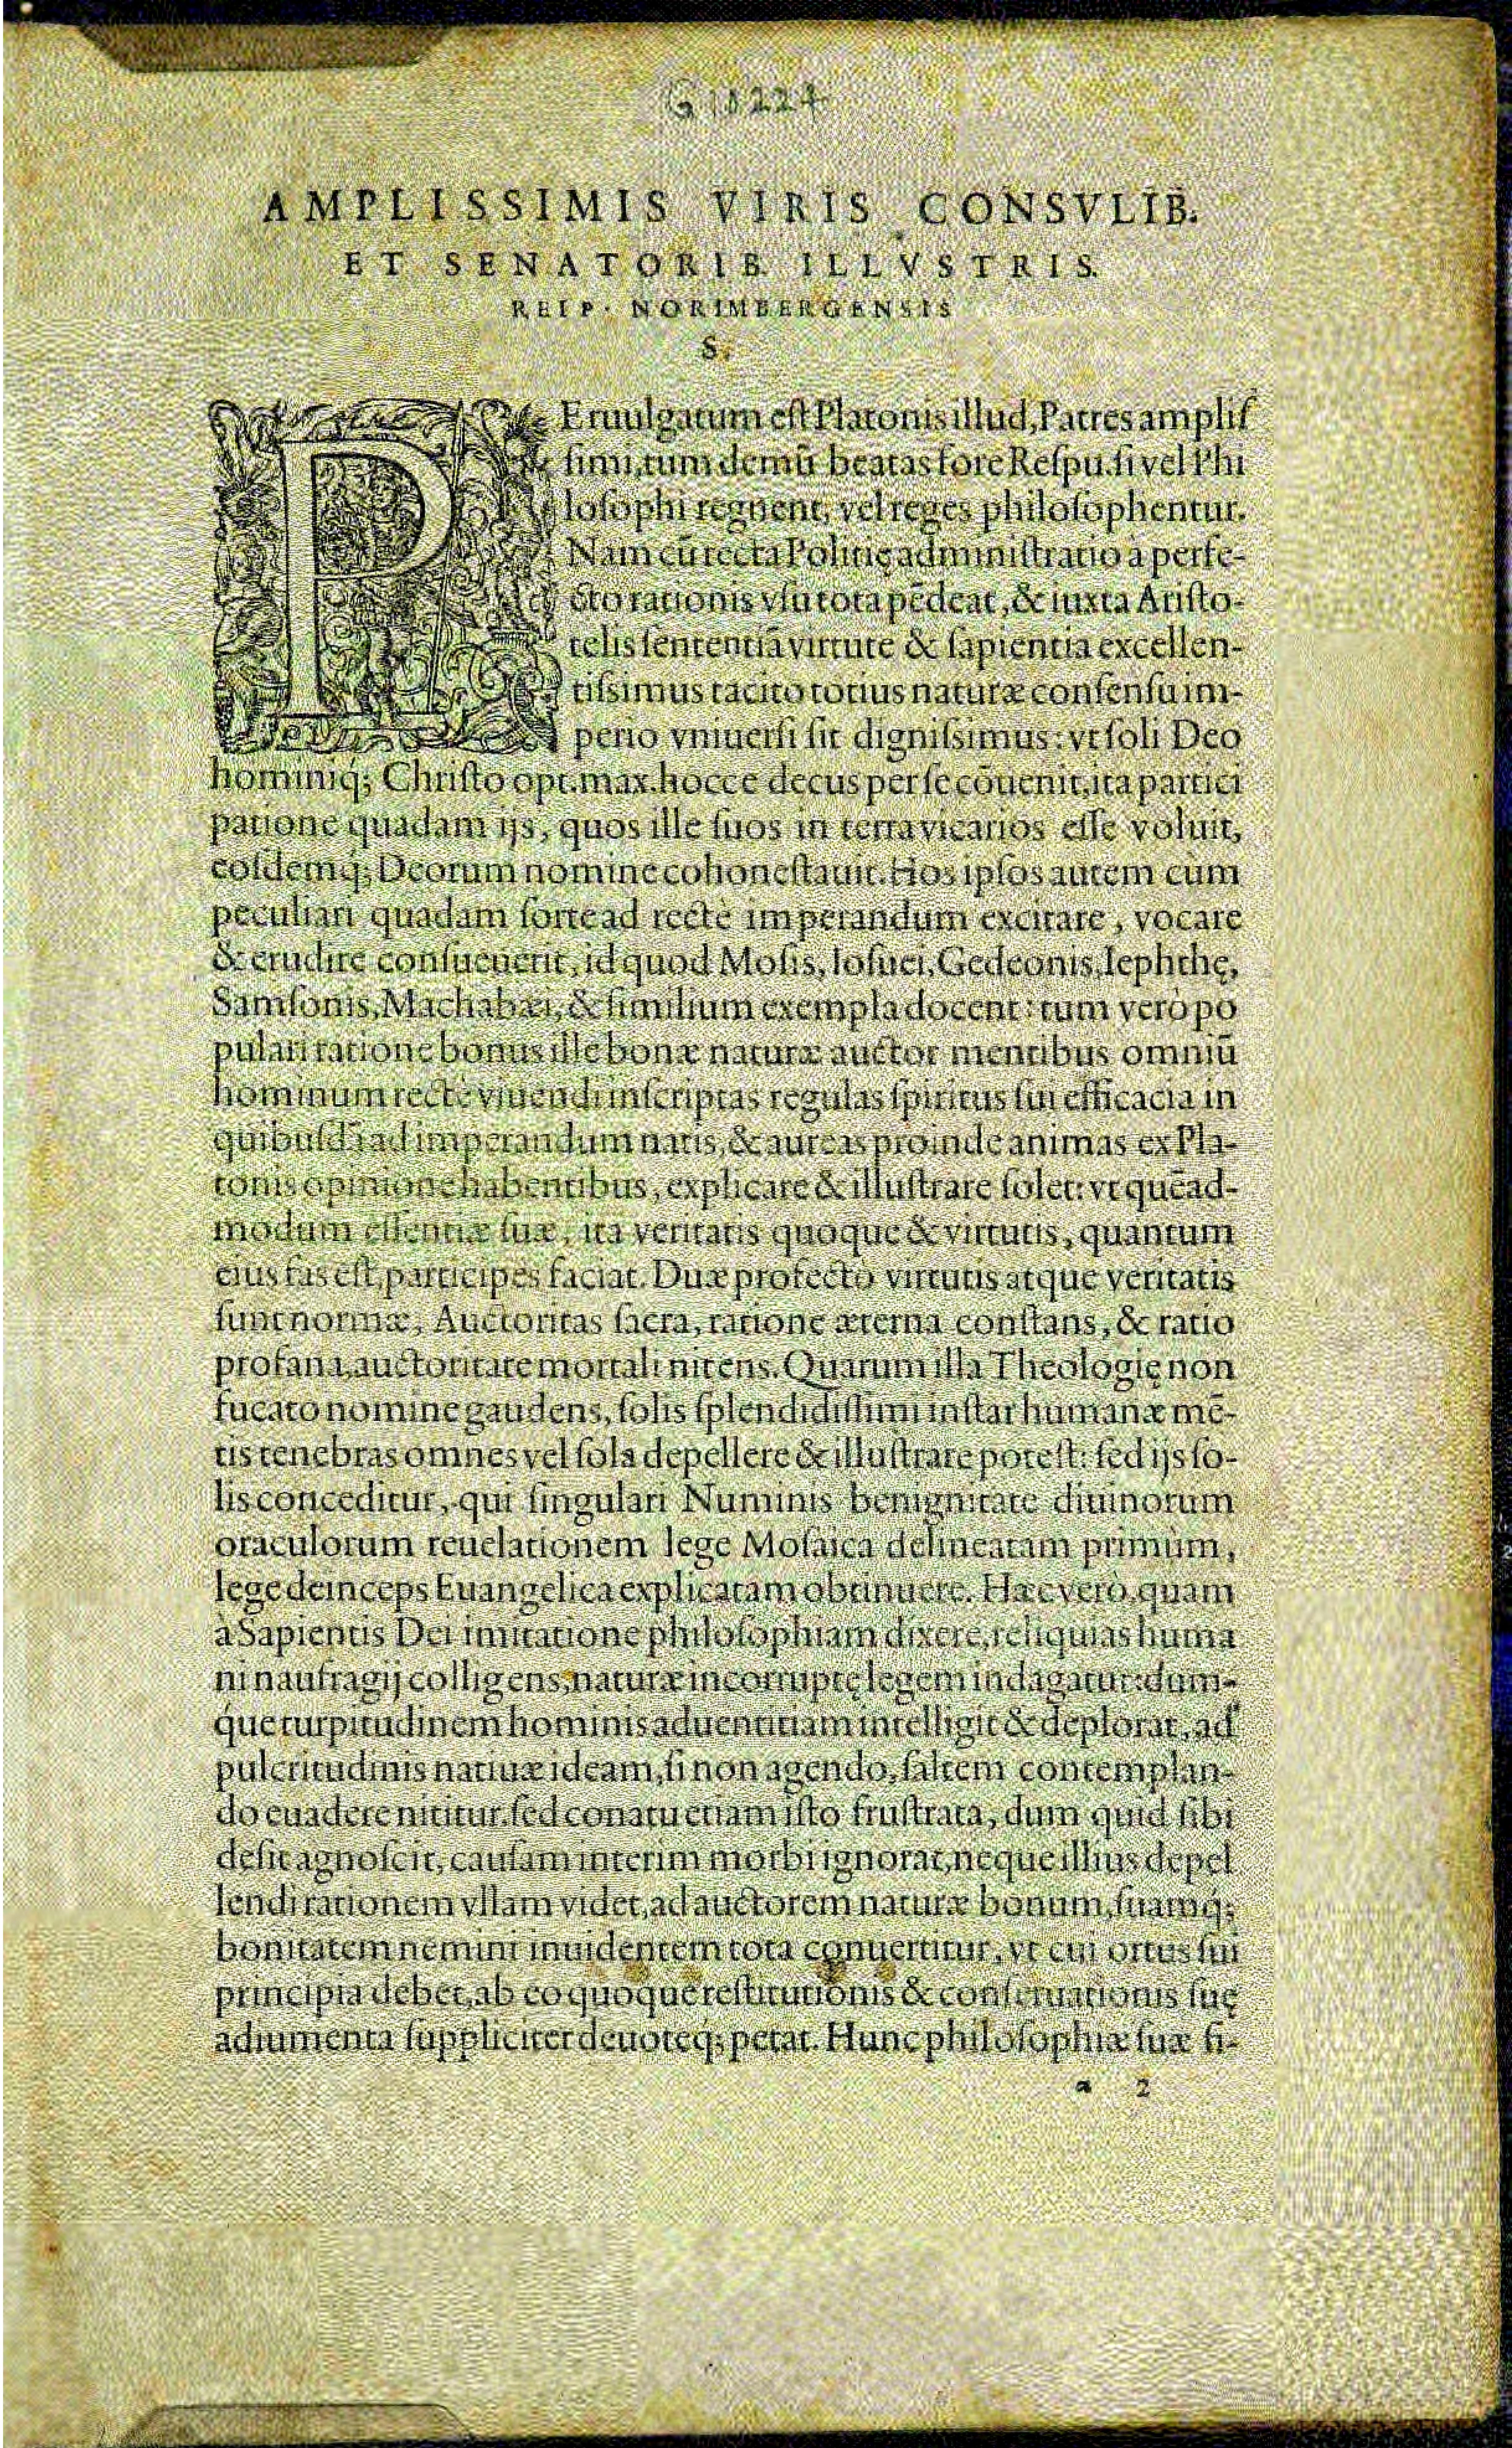 G 10224
AMPLISSIMIS VIRIS CONSVLIB.
ET SENATORIB. ILLVSTRIS.
REIP. NORIMBERGENSIS
S.
PEruulgatum est Platonis illud, Patres amplis
simi, tum demũ beatas fore Respu. si vel Phi
losophi regnent, vel reges philosophentur.
Nam cũ recta Politię administratio à perfe-
cto rationis vsu tota pẽdeat, & iuxta Aristo-
telis sententiã virtute & sapientia excellen-
tissimus tacito totius naturæ consensu im-
perio vniuersi sit dignissimus: vt soli Deo
hominiq; Christo opt. max. hocce decus per se cõuenit, ita partici
patione quadam ijs, quos ille suos in terra vicarios esse voluit,
eosdemq; Deorum nomine cohonestauit. Hos ipsos autem cum
peculiari quadam sorte ad rectè imperandum excitare, vocare
& erudire consueuerit, id quod Mosis, Iosuei, Gedeonis, Iephthę,
Samsonis, Machabæi, & similium exempla docent: tum verò po
pulari ratione bonus ille bonæ naturæ auctor mentibus omniũ
hominum rectè viuendi inscriptas regulas spiritus sui efficacia in
quibusdã ad imperandum natis, & aureas proinde animas ex Pla-
tonis opinione habentibus, explicare & illustrare solet: vt quẽad-
modum essentiæ suæ, ita veritatis quoque & virtutis, quantum
eius fas est, participes faciat. Duæ profectò virtutis atque veritatis
sunt normæ, Auctoritas sacra, ratione æterna constans, & ratio
profana, auctoritate mortali nitens. Quarum illa Theologię non
fucato nomine gaudens, solis splendidissimi instar humanæ mẽ-
tis tenebras omnes vel sola depellere & illustrare potest: sed ijs so-
lis conceditur, qui singulari Numinis benignitate diuinorum
oraculorum reuelationem lege Mosaica delineatam primùm,
lege deinceps Euangelica explicatam obtinuere. Hæc verò, quam
à Sapientis Dei imitatione philosophiam dixere, reliquias huma
ni naufragij colligens, naturæ incorruptę legem indagatur: dum-
que turpitudinem hominis aduentitiam intelligit & deplorat, ad
pulcritudinis natiuæ ideam, si non agendo, saltem contemplan-
do euadere nititur. sed conatu etiam isto frustrata, dum quid sibi
desit agnoscit, causam interim morbi ignorat, neque illius depel
lendi rationem vllam videt, ad auctorem naturæ bonum, suamq;
bonitatem nemini inuidentem tota conuertitur, vt cui ortus sui
principia debet, ab eo quoque restitutionis & conseruationis suę
adiumenta suppliciter deuoteq; petat. Hunc philosophiæ suæ fi-
a 2